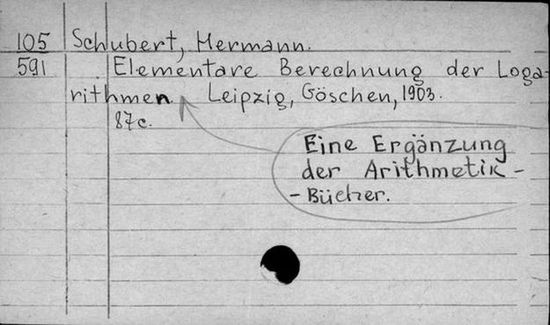 105 Schubert, Hermann.
591 Elementare Berechnung der Loga-
rithmen Leipzig, Göschen, 1903.
87c.
Eine Ergänzung
der Arithmetik -
- Bücher.